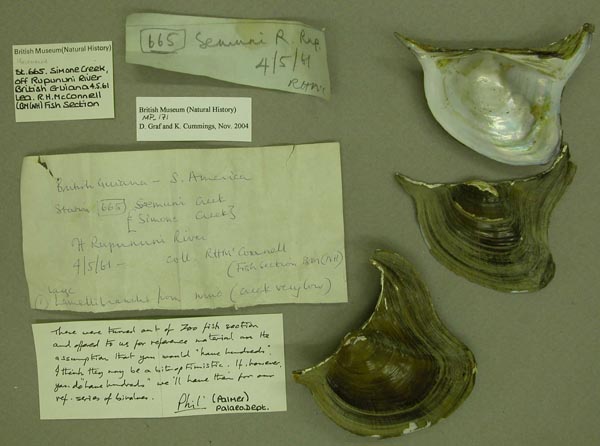 British Museum (Natural History)
St. 665. Simone Creek,
off Rupununi River
British Guiana 4.5.61
Leg. R.H. McConnell
(BM(NH) Fish Section
665 Semuni R. Rup.
4/5/61
RHM
British Museum (Natural History)
MP_171
D. Graf and K. Cummings, Nov. 2004
British Guiana - S. America
Station 665 Semuni Creek
{Simone Creek}
ff Rupununi River
4/5/61 - coll. RHMcConnell
(Fish section BM(NH)
Large
① Lamellibranchs from mud (creek very low)
These were turned out of Zoo fish section
and offered to us for reference material on the
assumption that you would "have hundreds".
I think they may be a bit optimistic. If, however,
you do "have hundreds" we'll have them for our
ref. series of bivalves.
Phil (Palmer)
Palaeo Dept.